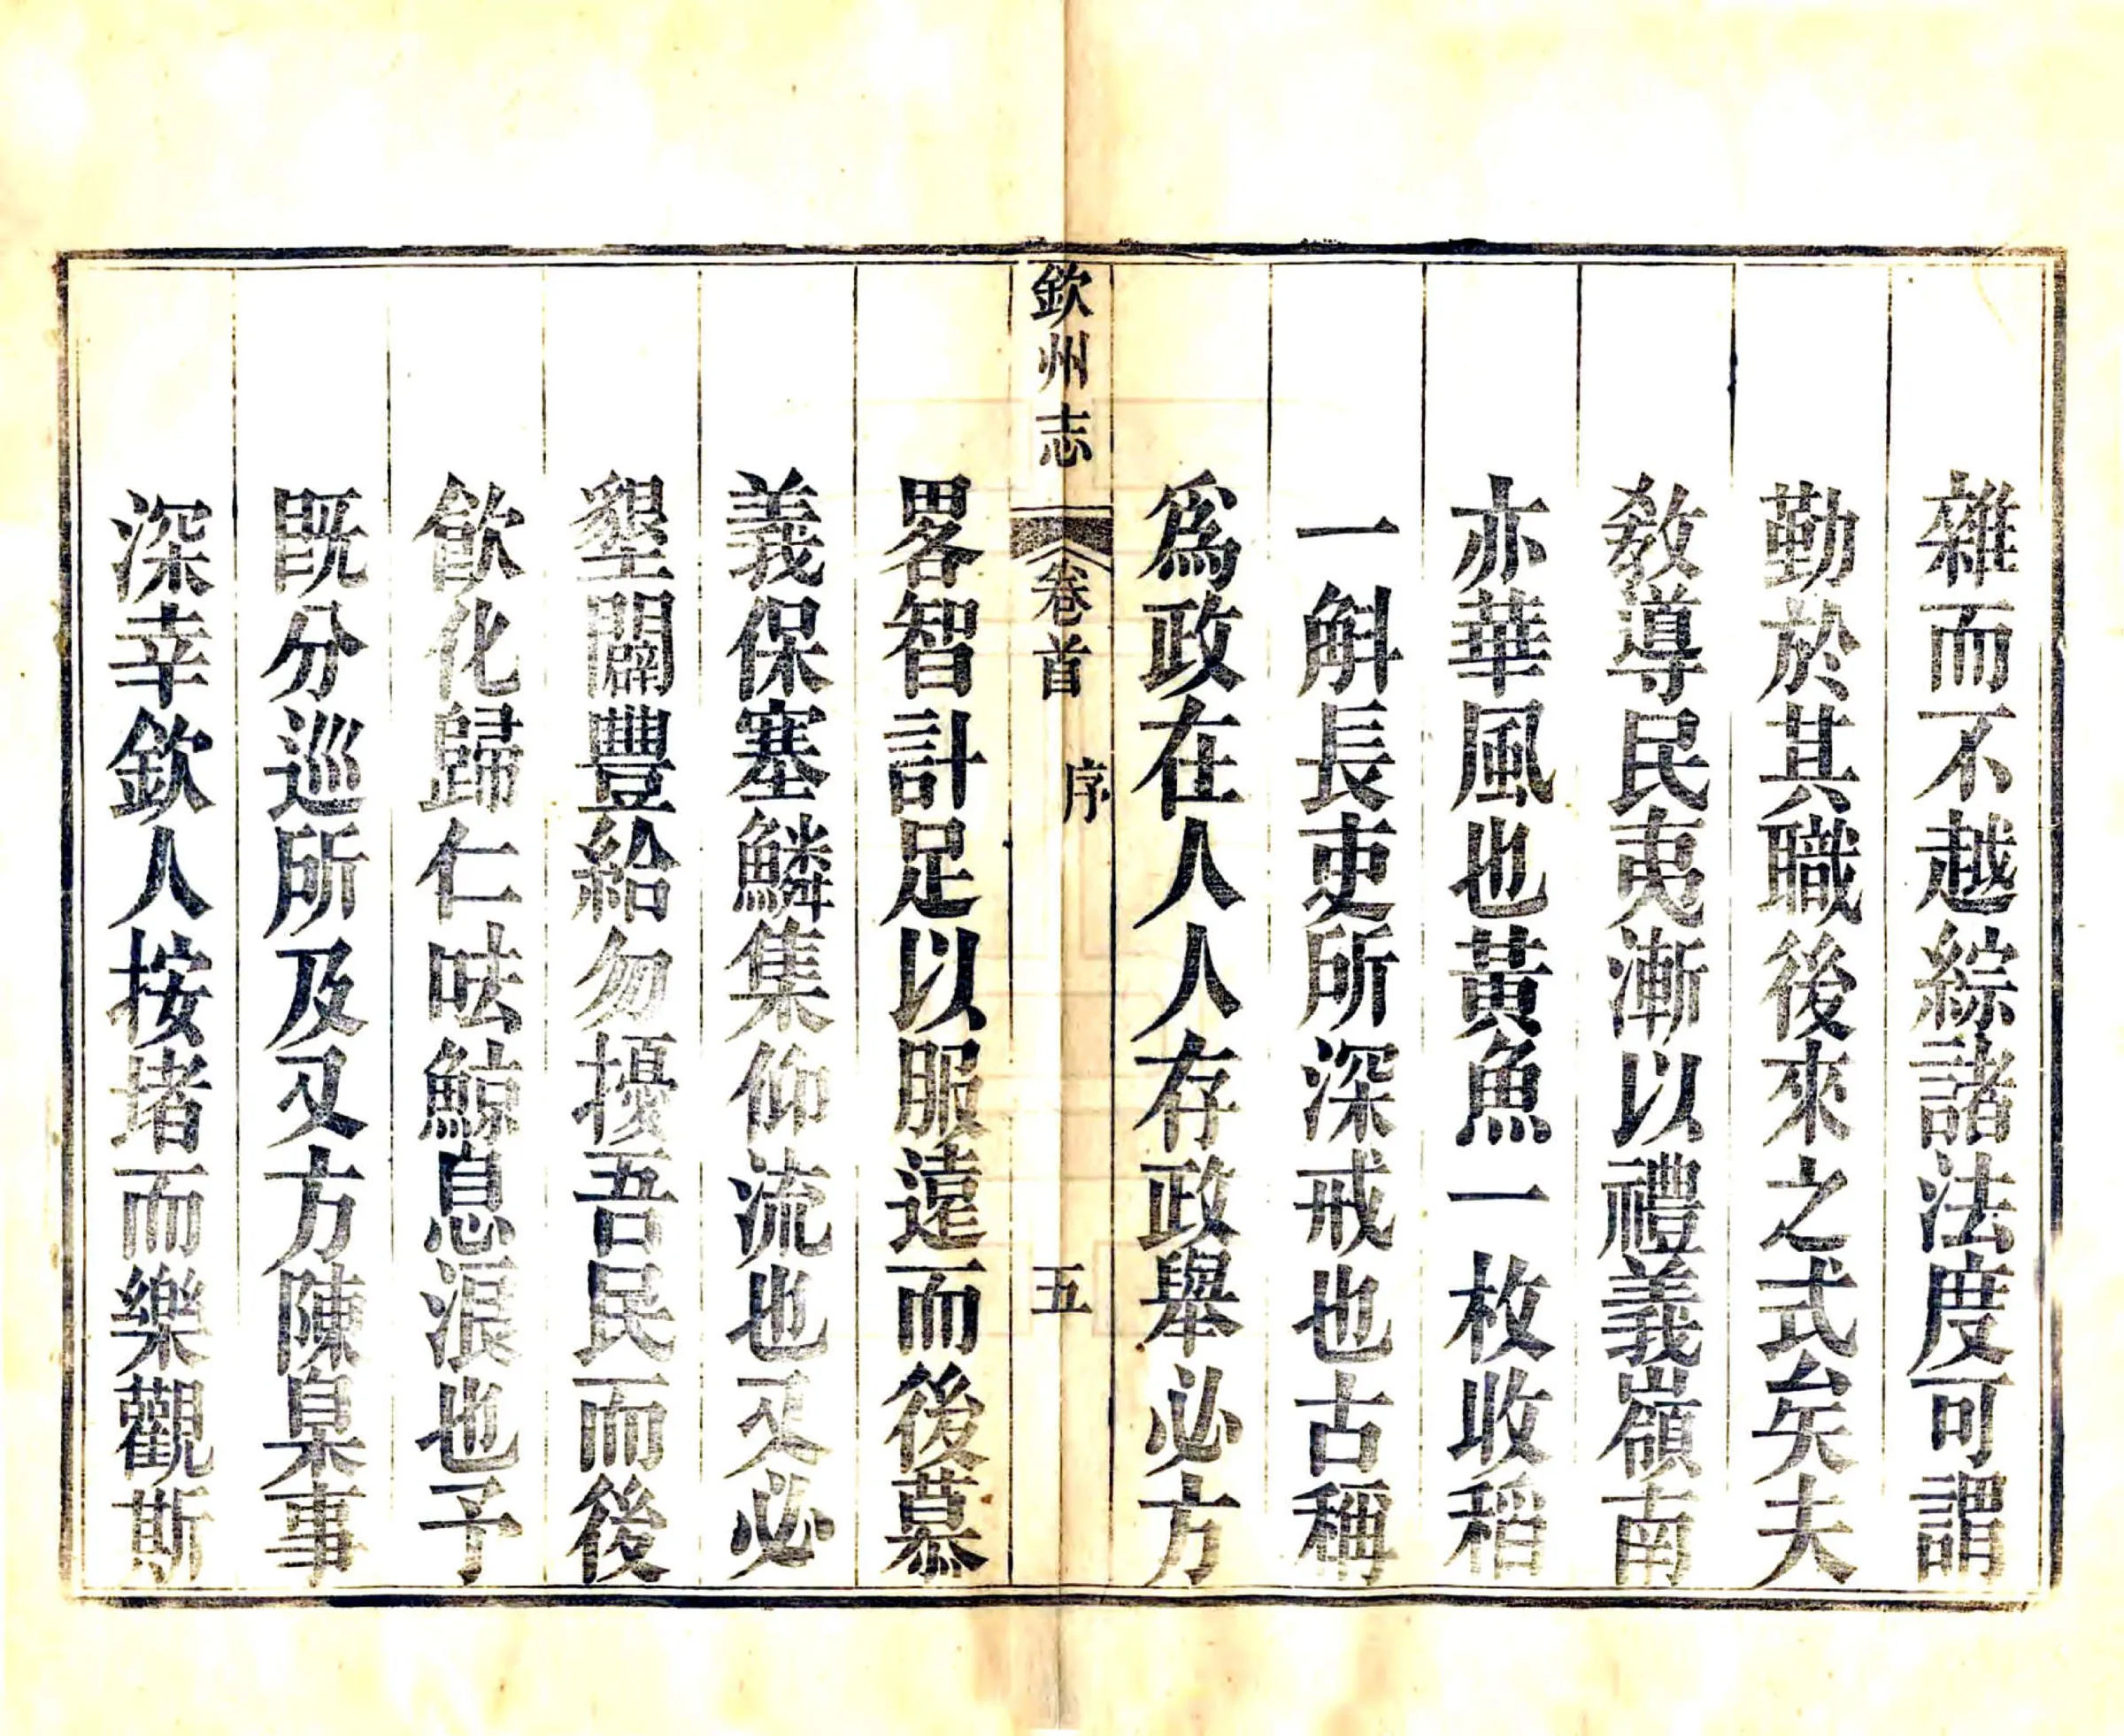 雜而不越綜諸法度可謂
勤於其職後來之式矣夫
敎導民夷漸以禮義嶺南
亦華風也黃魚一枚收稻
一斛長吏所深戒也古稱
爲政在人人存政舉必方
欽州志 卷首 序 五
畧智計足以服遠而後慕
義保塞鱗集仰流也又必
墾闢豐給勿擾吾民而後
飮化歸仁呿鯨息浪也予
既分巡所及又方陳臬事
深幸欽人按堵而樂觀斯